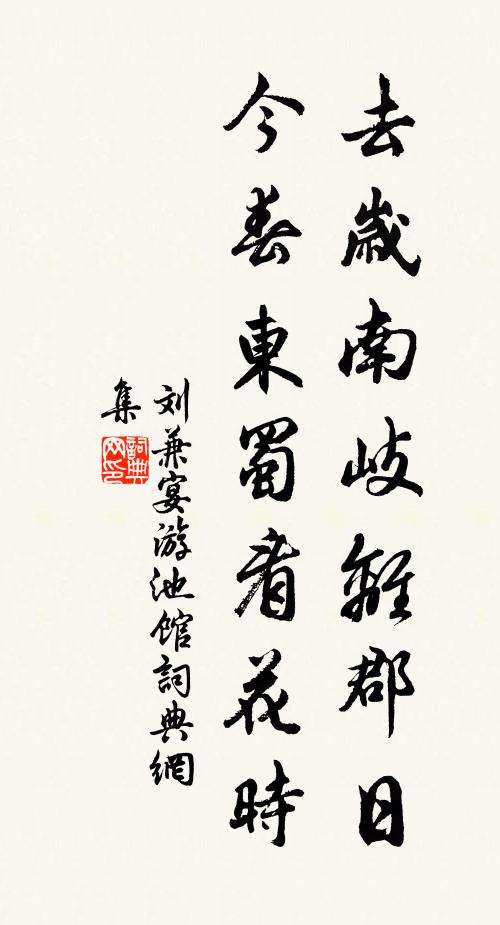 去歲南岐離郡日
今春東蜀看花時
刘兼宴游池館詞典網
集
詞典网印